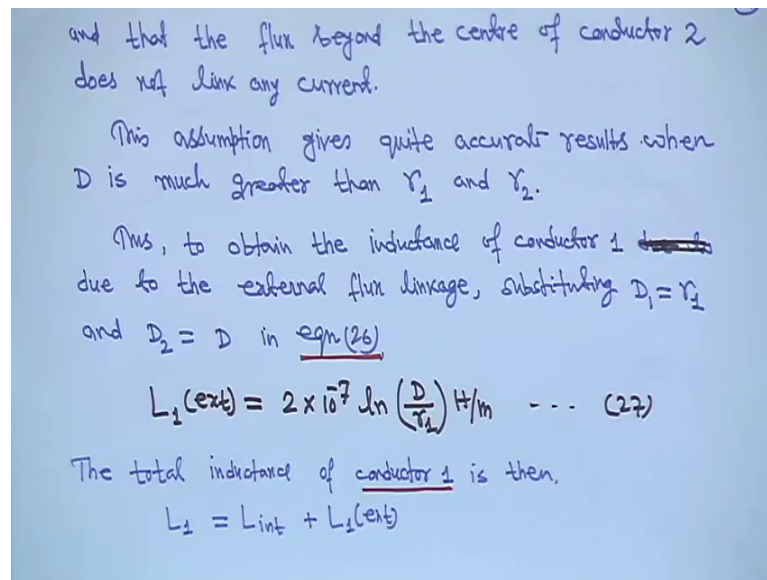 and that the flux beyond the centre of conductor 2
does not link any current.
This assumption gives quite accurate results when
D is much greater than r₁ and r₂.
Thus, to obtain the inductance of conductor 1
due to the external flux linkage, substituting D₁ = r₁
and D₂ = D in eqn(26)
L₁(ext) = 2 × 10⁻⁷ ln (D/r₁) H/m --- (27)
The total inductance of conductor 1 is then,
L₁ = Lint + L₁(ext)